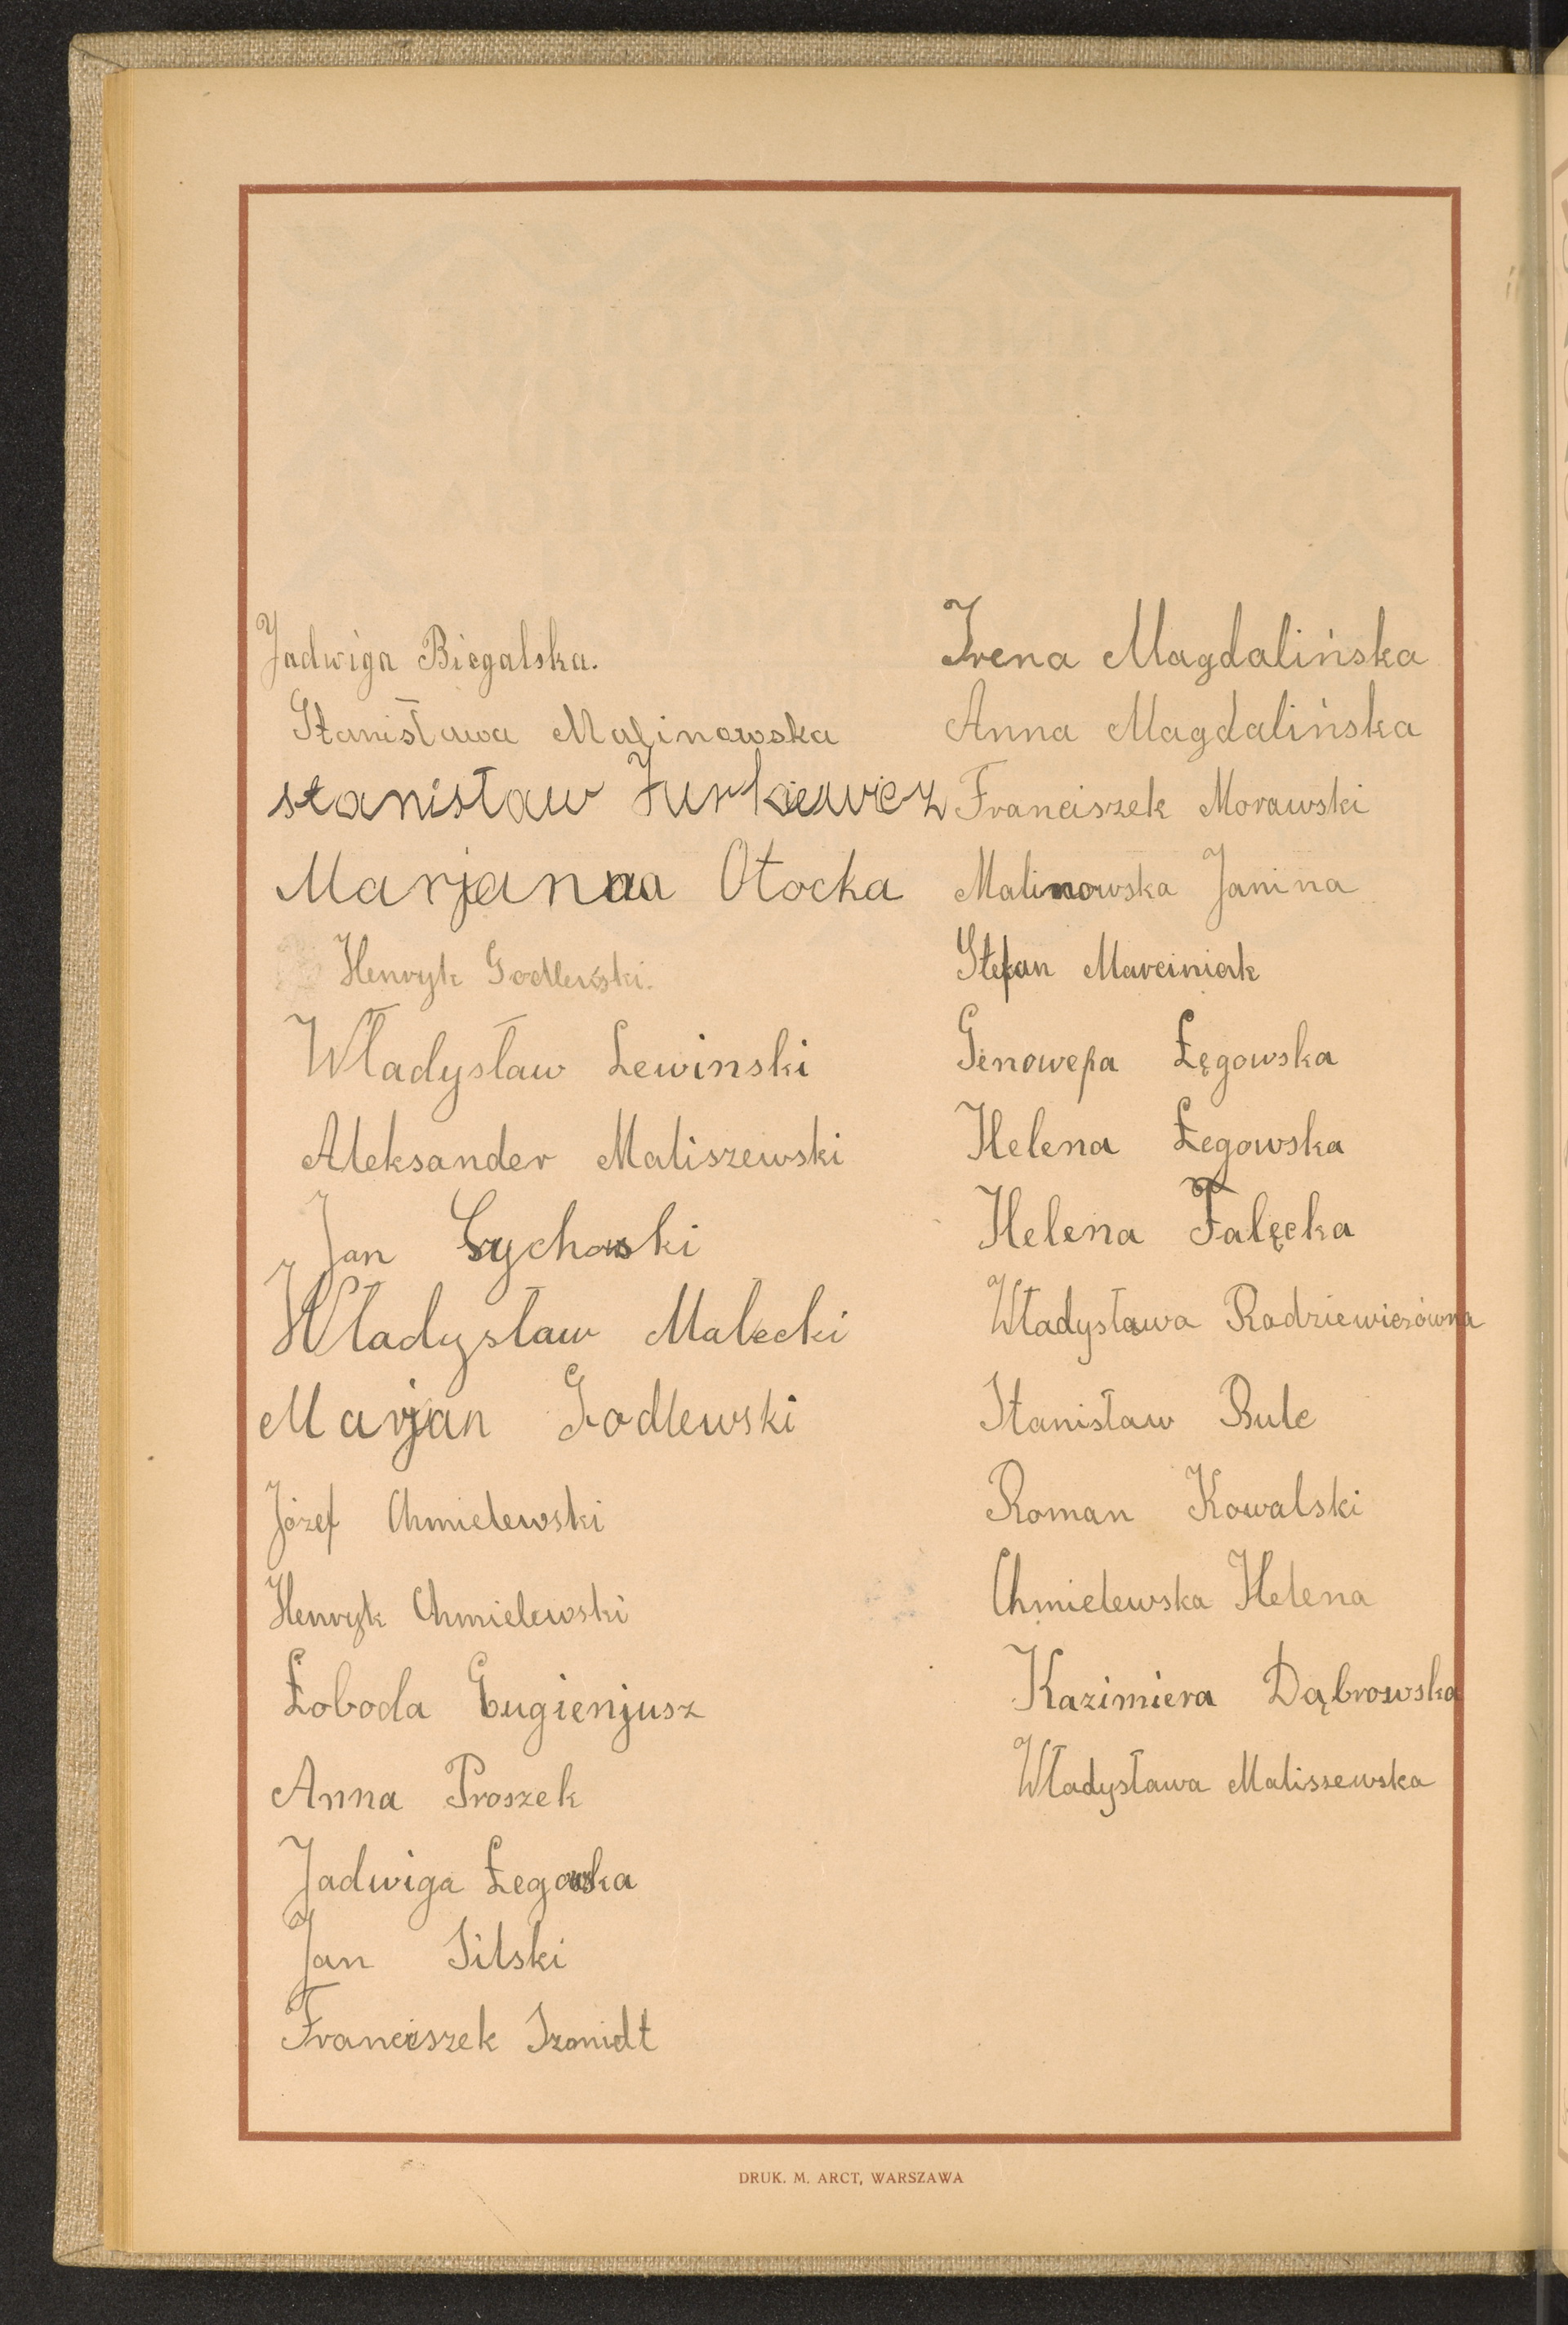 Jadwiga Biegalska.
Stanisława Malinowska
stanisław Żurkiewicz
Marjanna Otocka
Henryk Godlewski.
Władysław Lewinski
Aleksander Maliszewski
Jan
Władysław Malecki
Marjan Godlewski
Józef Chmielewski
Henryk Chmielewski
Łoboda Eugienjusz
Anna Proszek
Jadwiga Łegowska
Jan Silski
Franciszek Szmidt
Irena Magdalińska
Anna Magdalińska
Franciszek Morawski
Malinowska Janina
Stefan Marciniak
Genowefa Łęgowska
Helena Łegowska
Helena Falęcka
Władysława Radziewiczówna
Stanisław Bule
Roman Kowalski
Chmielewska Helena
Kazimiera Dąbrowska
Władysława Maliszewska
DRUK. M. ARCT, WARSZAWA